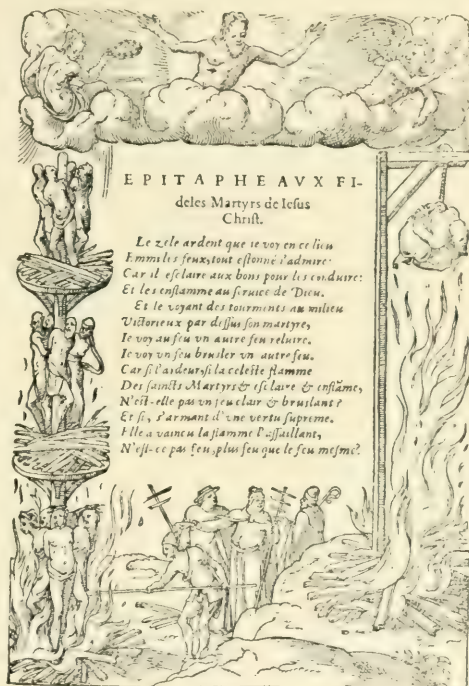 EPITAPHE AVX FI-
deles Martyrs de Iesus
Christ.
Le zele ardent que ie voy en ce lieu
Emmi les feux, tout estonné i'admire:
Car il esclaire aux bons pour les conduire:
Et les enflamme au seruice de Dieu.
Et le voyant des tourments au milieu
Victorieux par dessus son martyre,
Ie voy au feu vn autre feu reluire.
Ie voy vn feu brusler vn autre feu.
Car si l'ardeur, si la celeste flamme
Des saincts Martyrs & esclaire & enflāme,
N'est-elle pas vn feu clair & bruslant?
Et si, s'armant d'vne vertu supreme.
Elle a vaincu la flamme l'assaillant,
N'est-ce pas feu, plus feu que le feu mesme?